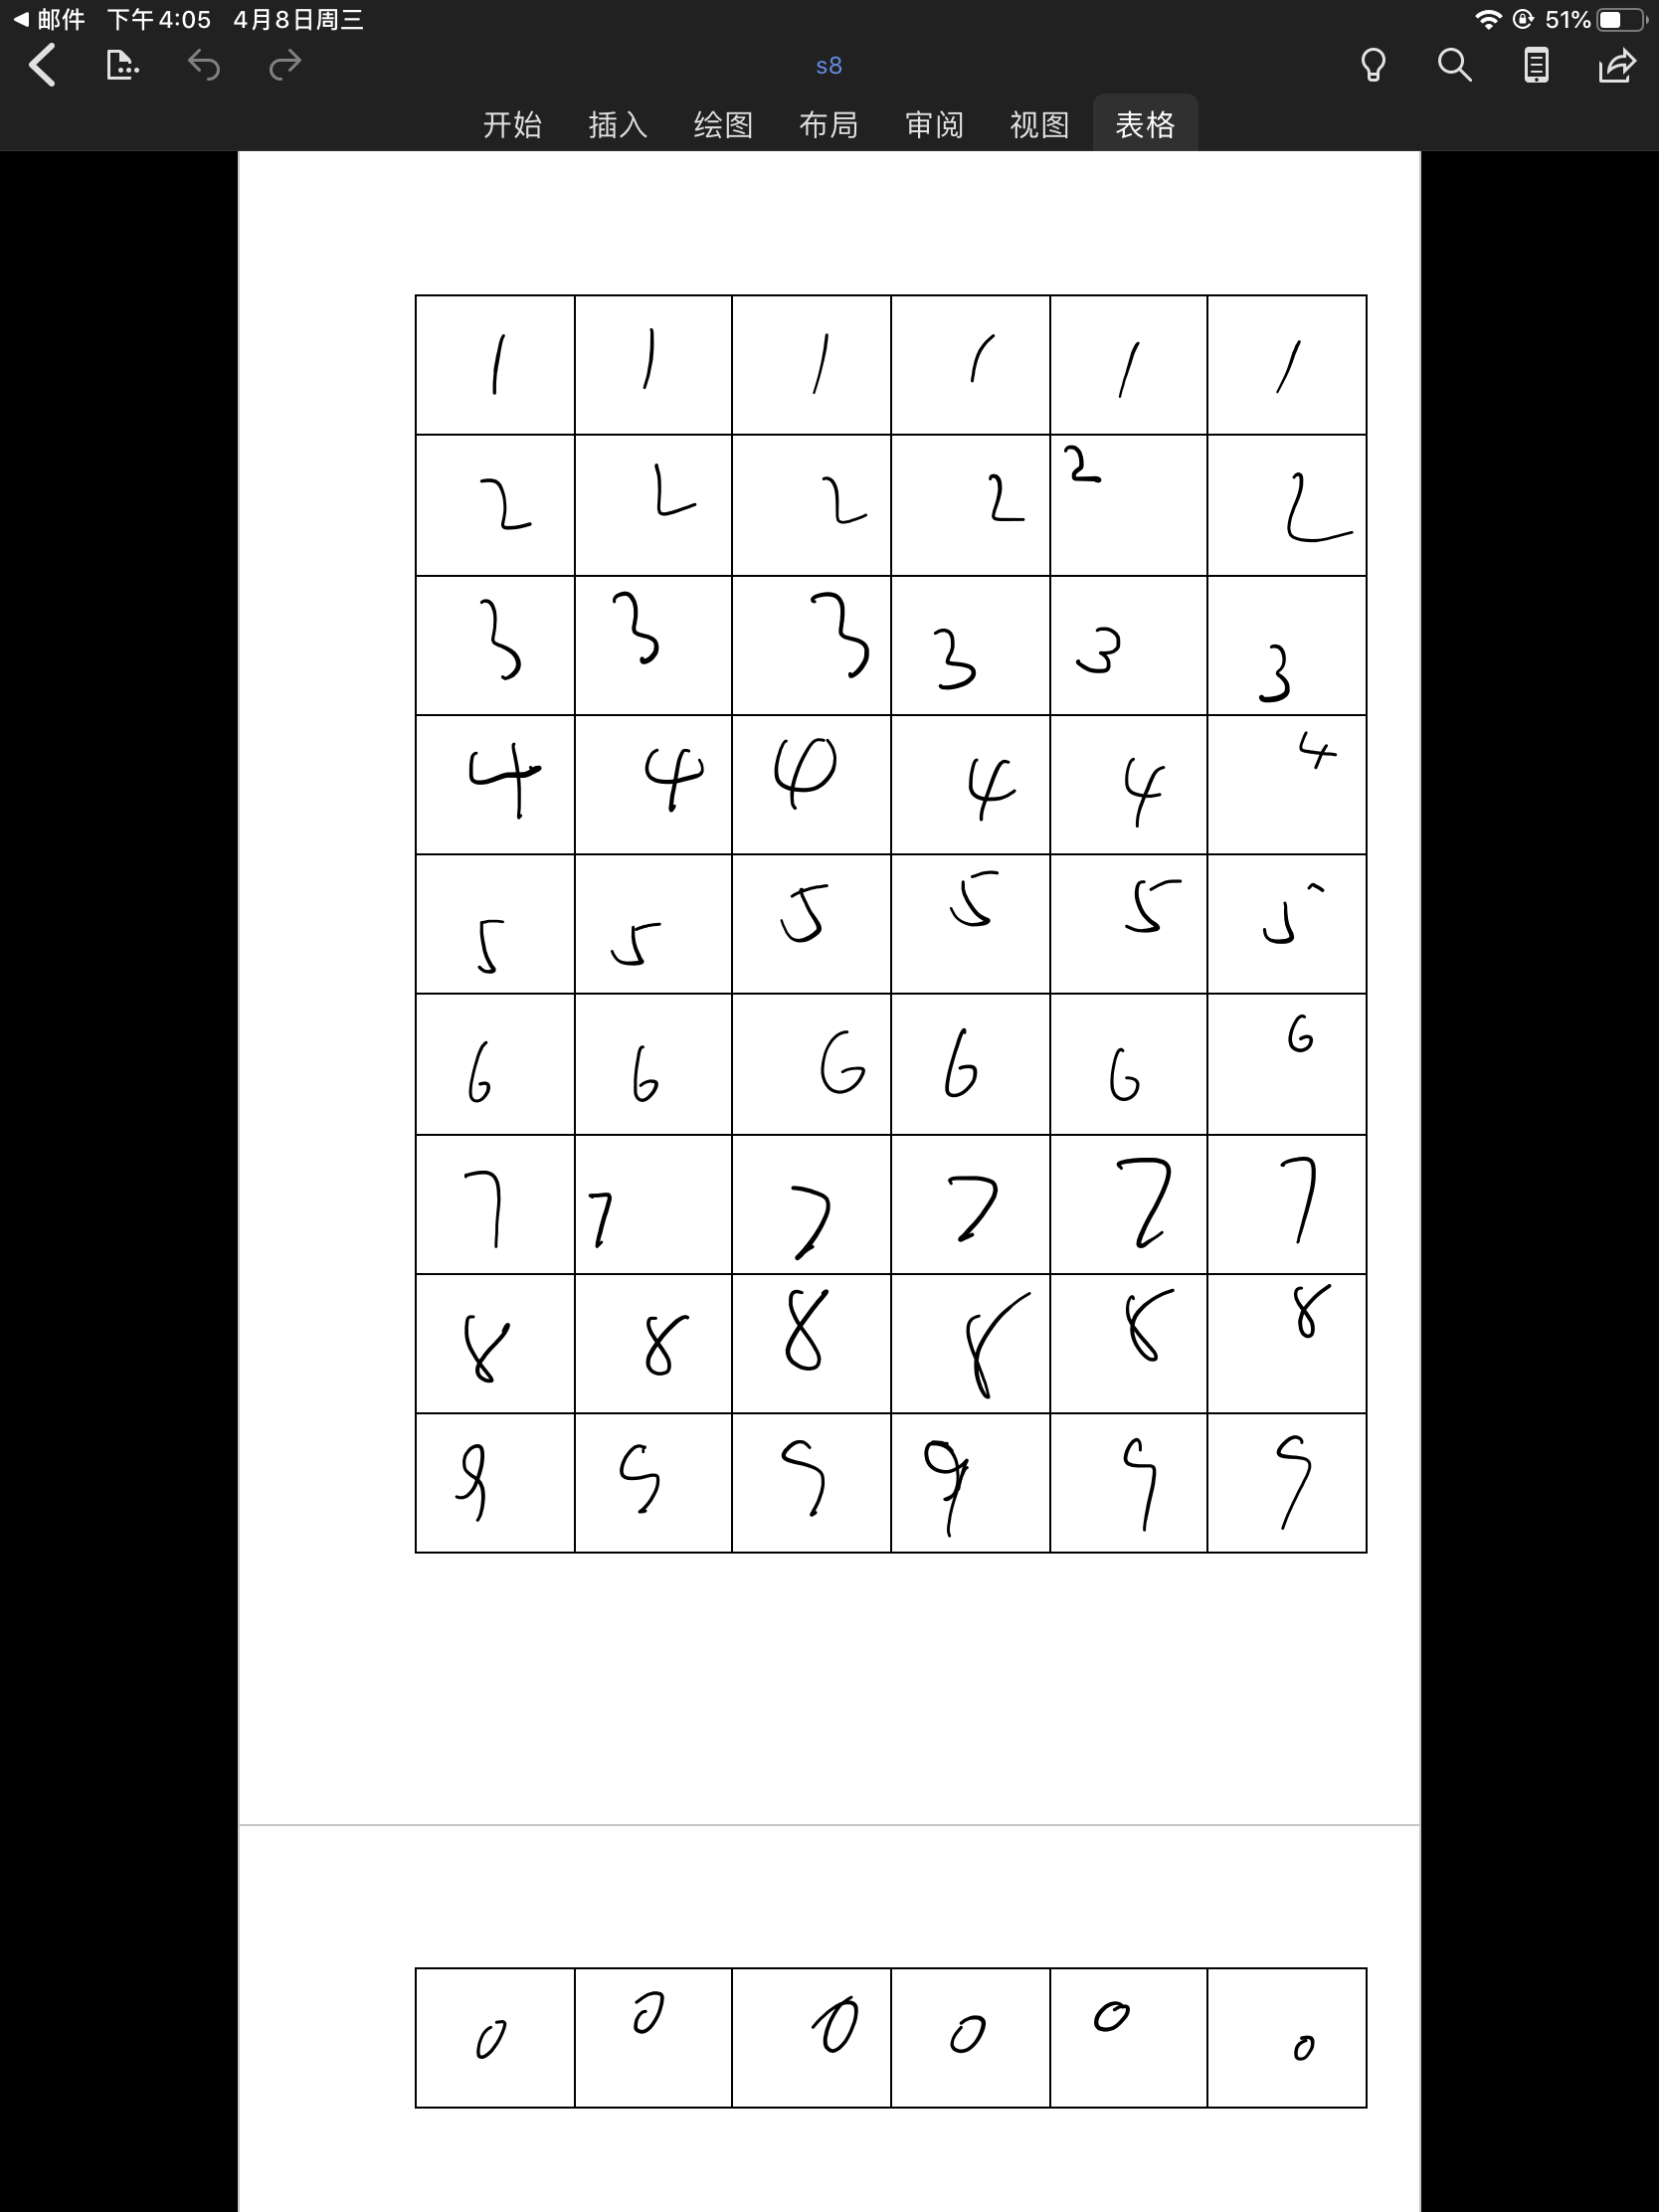 邮件 下午4:05 4月8日周三 51%
s8
开始 插入 绘图 布局 审阅 视图 表格
1 1 1 1 1 1
2 2 2 2 2 2
3 3 3 3 3 3
4 4 4 4 4 4
5 5 5 5 5 5
6 6 6 6 6 6
7 7 7 7 7 7
8 8 8 8 8 8
9 9 9 9 9 9
0 0 0 0 0 0